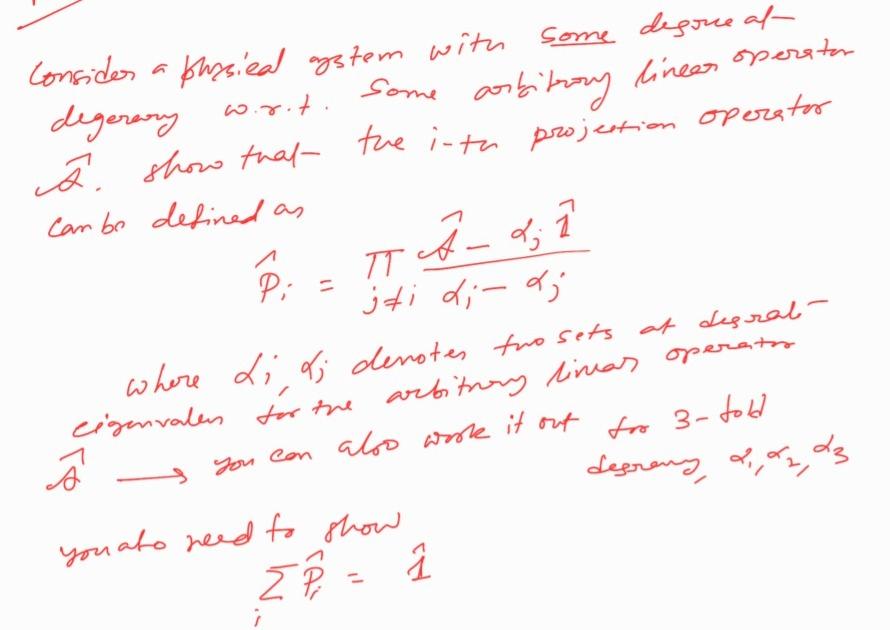 Consider a physical system with some degree of
degeneracy w.r.t. Some arbitrary linear operator
Â. show that the i-th projection operator
can be defined as
P̂ᵢ = Π_{j≠i} (Â - αⱼ 1̂) / (αᵢ - αⱼ)
where αᵢ, αⱼ denotes two sets of degenerate
eigenvalues for the arbitrary linear operator
Â → you can also work it out for 3-fold
degeneracy, α₁, α₂, α₃
you also need to show
Σᵢ P̂ᵢ = 1̂